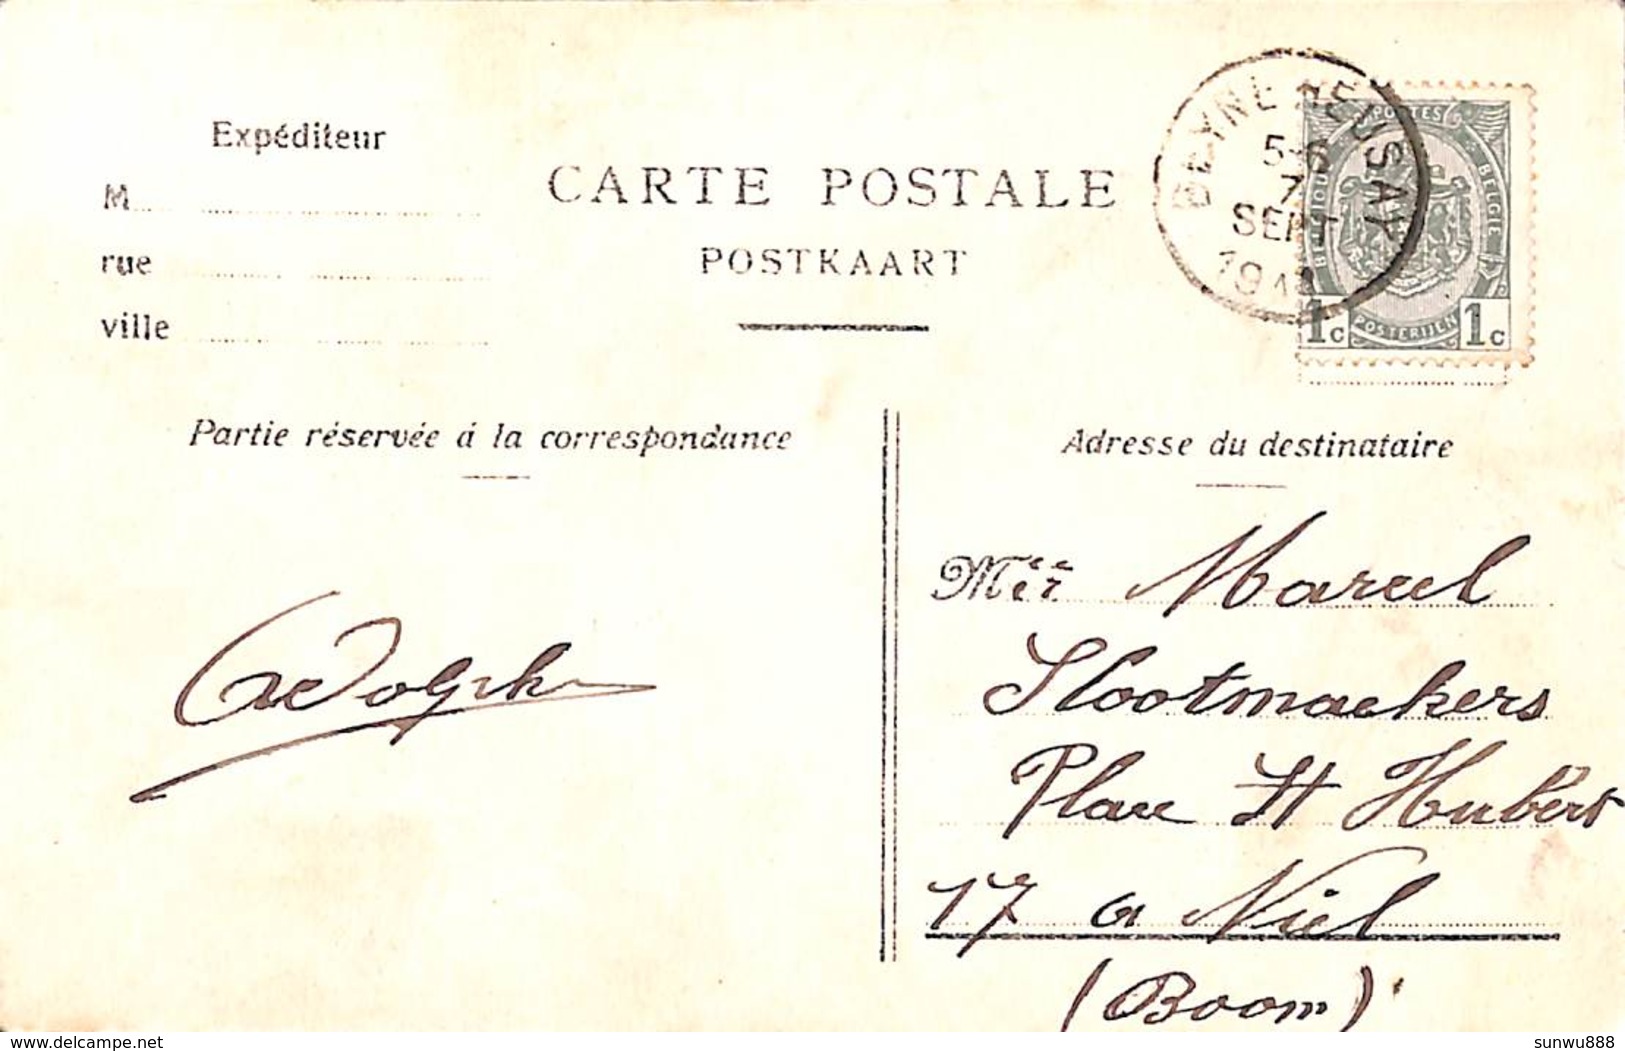 Expéditeur
M
rue
ville
CARTE POSTALE
POSTKAART
BEYNE-HEUSAY
5-6
7
SEPT
POSTES
BELGIQUE
BELGIE
1c POSTERIJEN 1c
Partie réservée á la correspondance
Adresse du destinataire
Adolph
M Marcel
Slootmaekers
Place St Hubert
17 a Niel
(Boom)
delcampe.net
sunwu888